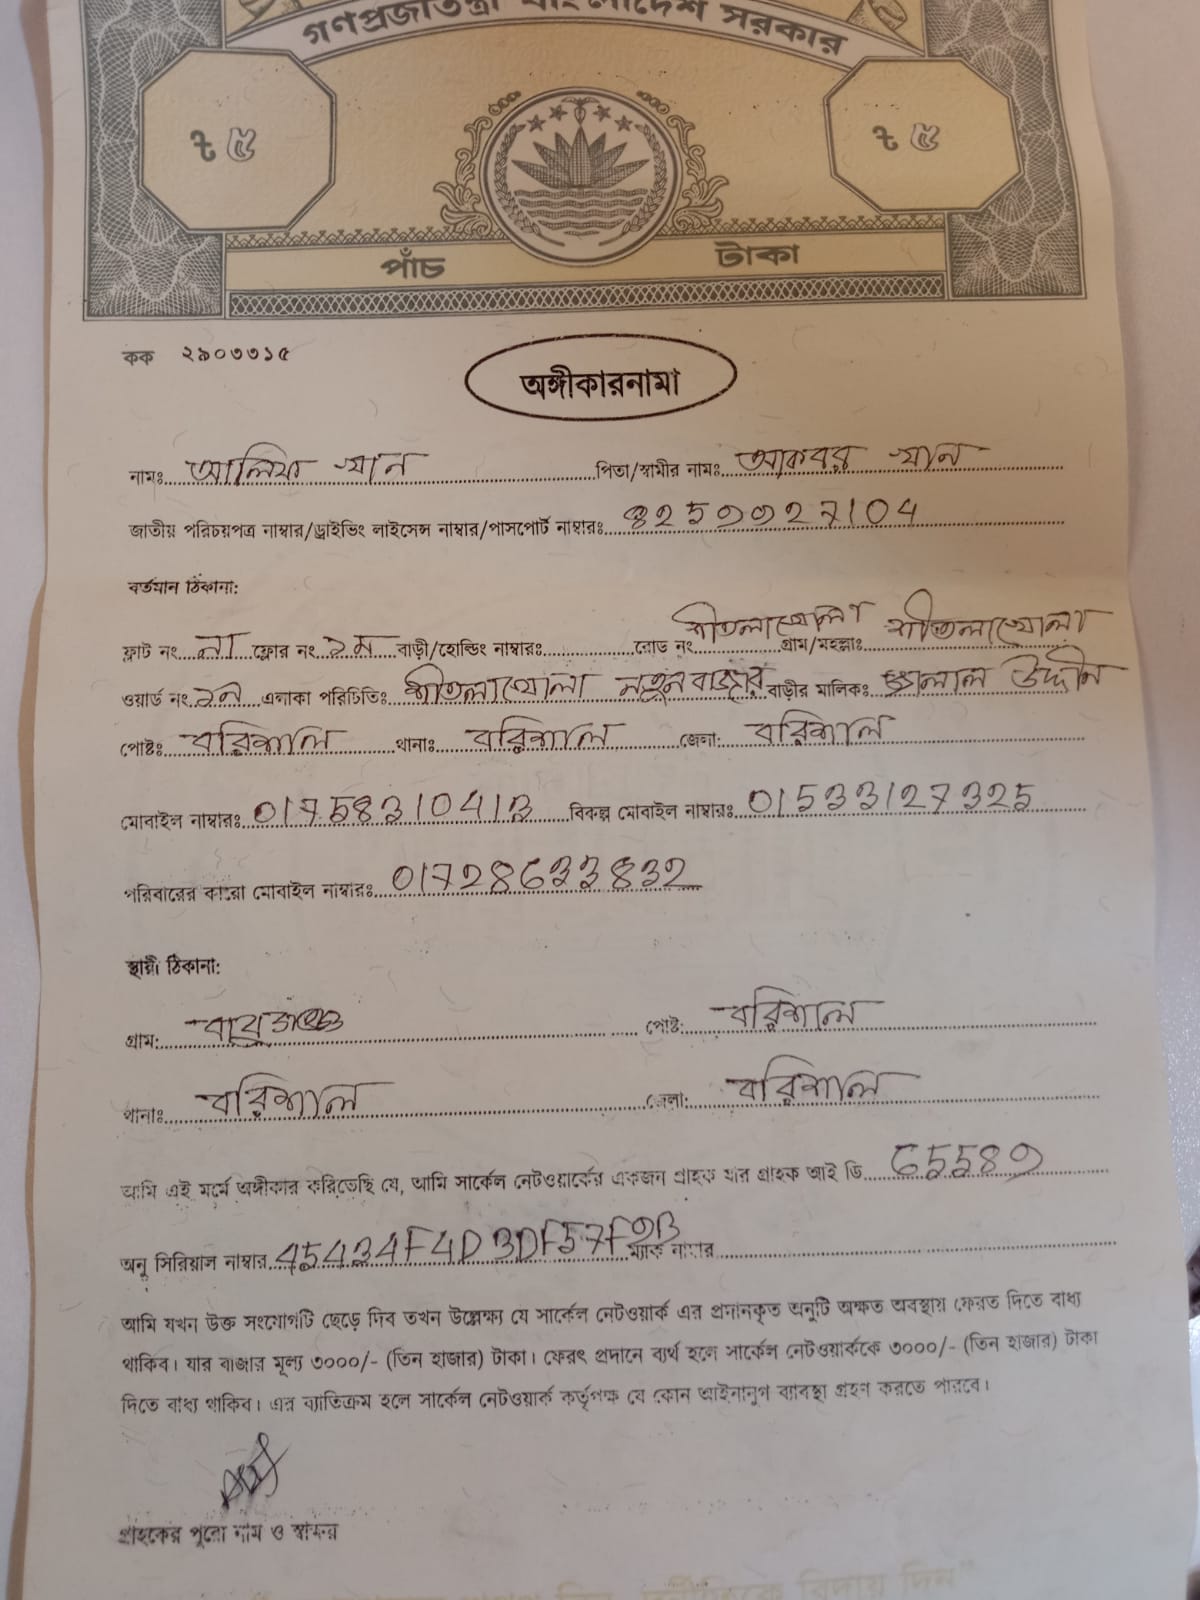 গণপ্রজাতন্ত্রী বাংলাদেশ সরকার
৳ ৫ ৳ ৫
পাঁচ টাকা
কক ২৯০৩৩১৫
অঙ্গীকারনামা
নামঃ আলিফ খান পিতা/স্বামীর নামঃ আকবর খান
জাতীয় পরিচয়পত্র নাম্বার/ড্রাইভিং লাইসেন্স নাম্বার/পাসপোর্ট নাম্বারঃ
বর্তমান ঠিকানা:
ফ্লাট নং না ফ্লোর নং ১ম বাড়ী/হোল্ডিং নাম্বারঃ রোড নং শীতলাখোলা গ্রাম/মহল্লাঃ শীতলাখোলা
ওয়ার্ড নং এলাকা পরিচিতিঃ শীতলাখোলা নতুন বাজার বাড়ীর মালিকঃ উদ্দীন
পোষ্টঃ বরিশাল থানাঃ বরিশাল জেলা: বরিশাল
মোবাইল নাম্বারঃ 01758310413 বিকল্প মোবাইল নাম্বারঃ 01533127325
পরিবারের কারো মোবাইল নাম্বারঃ 01728633832
স্থায়ী ঠিকানা:
গ্রাম: পোষ্ট: বরিশাল
থানাঃ বরিশাল জেলা: বরিশাল
আমি এই মর্মে অঙ্গীকার করিতেছি যে, আমি সার্কেল নেটওয়ার্কের একজন গ্রাহক যার গ্রাহক আই ডি
অনু সিরিয়াল নাম্বার 45434F4D3DF57F9B ম্যাক নাম্বার
আমি যখন উক্ত সংযোগটি ছেড়ে দিব তখন উল্লেক্ষ্য যে সার্কেল নেটওয়ার্ক এর প্রদানকৃত অনুটি অক্ষত অবস্থায় ফেরত দিতে বাধ্য
থাকিব। যার বাজার মূল্য ৩০০০/- (তিন হাজার) টাকা। ফেরৎ প্রদানে ব্যর্থ হলে সার্কেল নেটওয়ার্ককে ৩০০০/- (তিন হাজার) টাকা
দিতে বাধ্য থাকিব। এর ব্যাতিক্রম হলে সার্কেল নেটওয়ার্ক কর্তৃপক্ষ যে কোন আইনানুগ ব্যাবস্থা গ্রহণ করতে পারবে।
গ্রাহকের পুরো নাম ও স্বাক্ষর
বিদায় দিন"